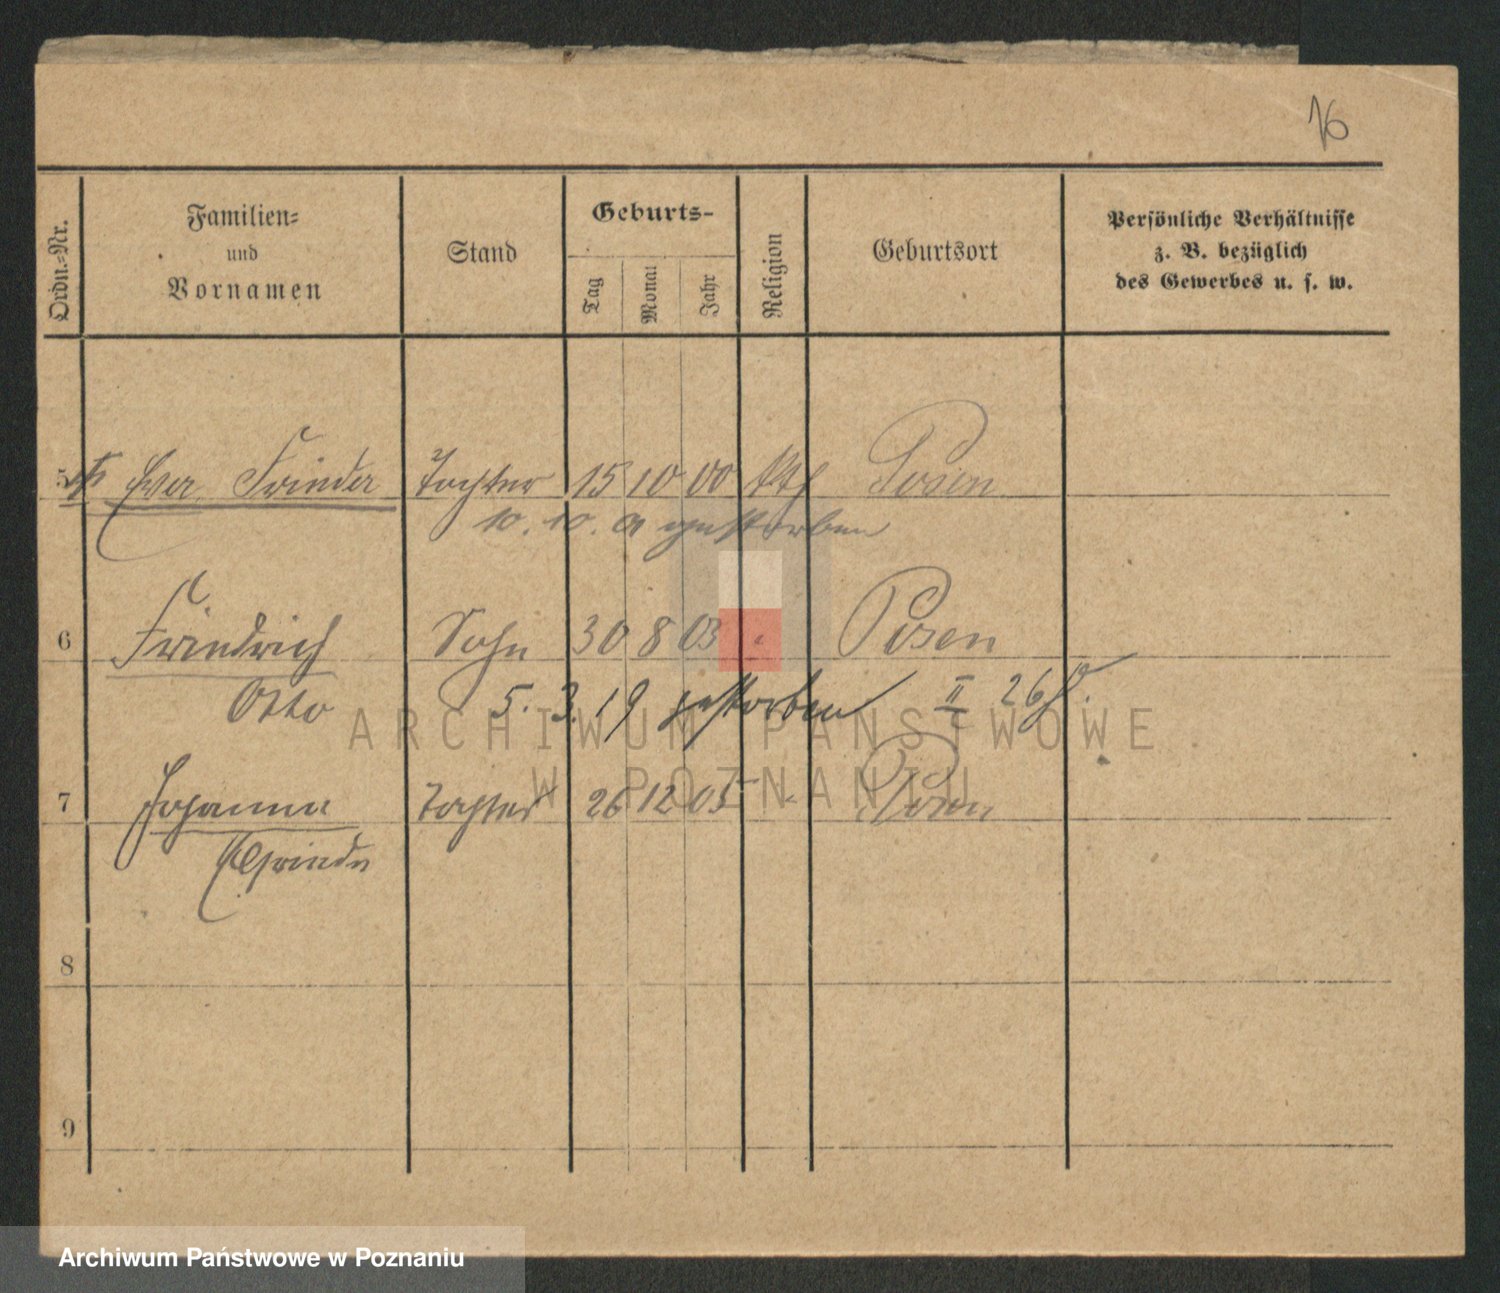 76
Ordn.-Nr.
Familien-
und
Vornamen
Stand
Geburts-
Tag
Monat
Jahr
Religion
Geburtsort
Persönliche Verhältnisse
z. B. bezüglich
des Gewerbes u. s. w.
5 Frieda Tochter 15 10 00 kth Posen
10. 10. 01 gestorben
6 Friedrich Sohn 30 8 03 " Posen
Otto 5. 3. 19 gestorben II 26
7 Johanna Tochter 26 12 05 " Posen
8
9
ARCHIWUM PAŃSTWOWE
W POZNANIU
Archiwum Państwowe w Poznaniu